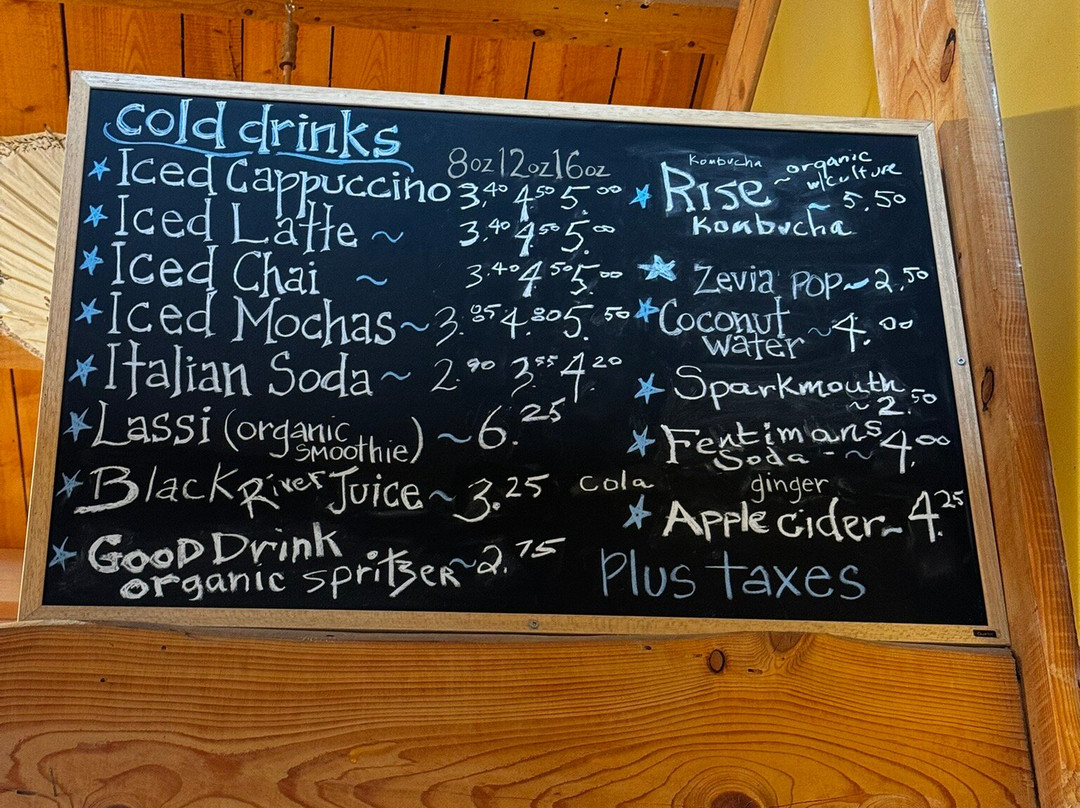 cold drinks
8oz 12oz 16oz
Iced Cappuccino 3.40 4.50 5.00
Iced Latte ~ 3.40 4.50 5.00
Iced Chai ~ 3.40 4.50 5.00
Iced Mochas ~ 3.85 4.80 5.50
Italian Soda ~ 2.90 3.55 4.20
Lassi (organic smoothie) ~ 6.25
Black River Juice ~ 3.25
Good Drink
organic spritzer ~ 2.75
Kombucha
Rise ~ organic
w/culture
~ 5.50
Kombucha
Zevia pop ~ 2.50
Coconut
water ~ 4.00
Sparkmouth
~ 2.50
Fentimans
Soda - ~ 4.00
cola ginger
Apple cider ~ 4.25
Plus taxes